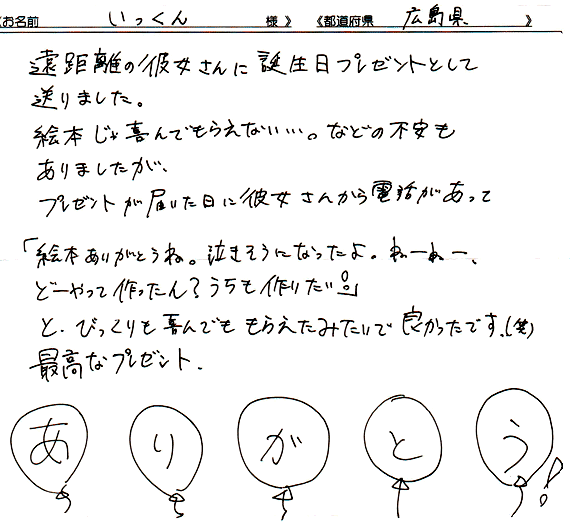 《お名前 いっくん 様》 《都道府県 広島県 》
遠距離の彼女さんに誕生日プレゼントとして
送りました。
絵本じゃ喜んでもらえない…。などの不安も
ありましたが、
プレゼントが届いた日に彼女さんから電話があって
「絵本ありがとうね。泣きそうになったよ。ねーねー、
どーやって作ったん?うちも作りたい!!」
と、びっくりも喜んでももらえたみたいで良かったです。(笑)
最高なプレゼント、
ありがとう!